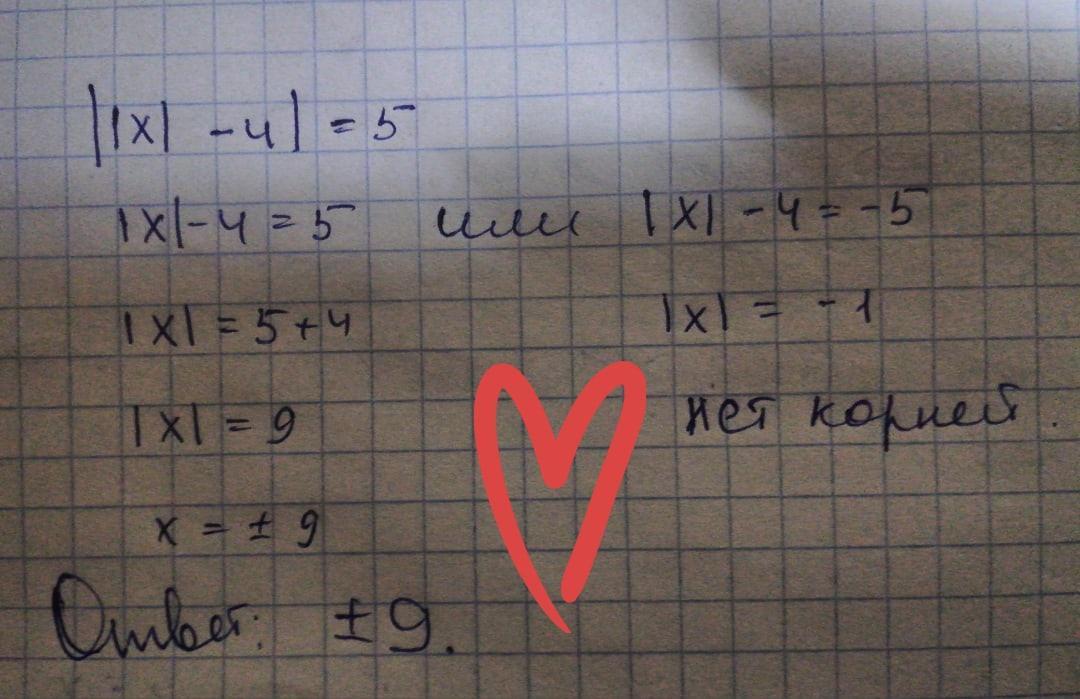 ||x| - 4| = 5
|x| - 4 = 5 или |x| - 4 = -5
|x| = 5 + 4 |x| = -1
|x| = 9 нет корней.
x = ± 9
Ответ: ± 9.